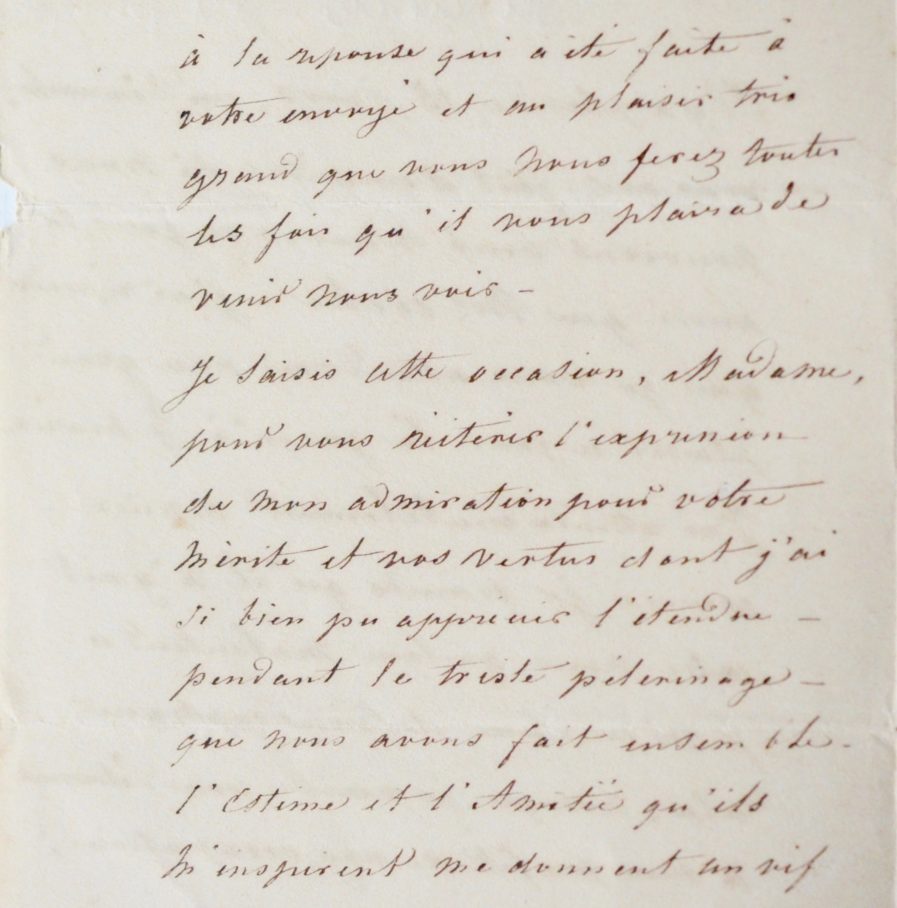 à la reponse qui a été faite à
votre envoyé et au plaisir très
grand que vous nous ferez toutes
les fois qu'il vous plaira de
venir nous voir -
Je saisis cette occasion, Madame,
pour vous réitérer l'expression
de mon admiration pour votre
mérite et vos vertus dont j'ai
si bien pu apprecier l'étendue -
pendant le triste pélerinage -
que nous avons fait ensemble -
l'Estime et l'Amitié qu'ils
m'inspirent me donnent un vif